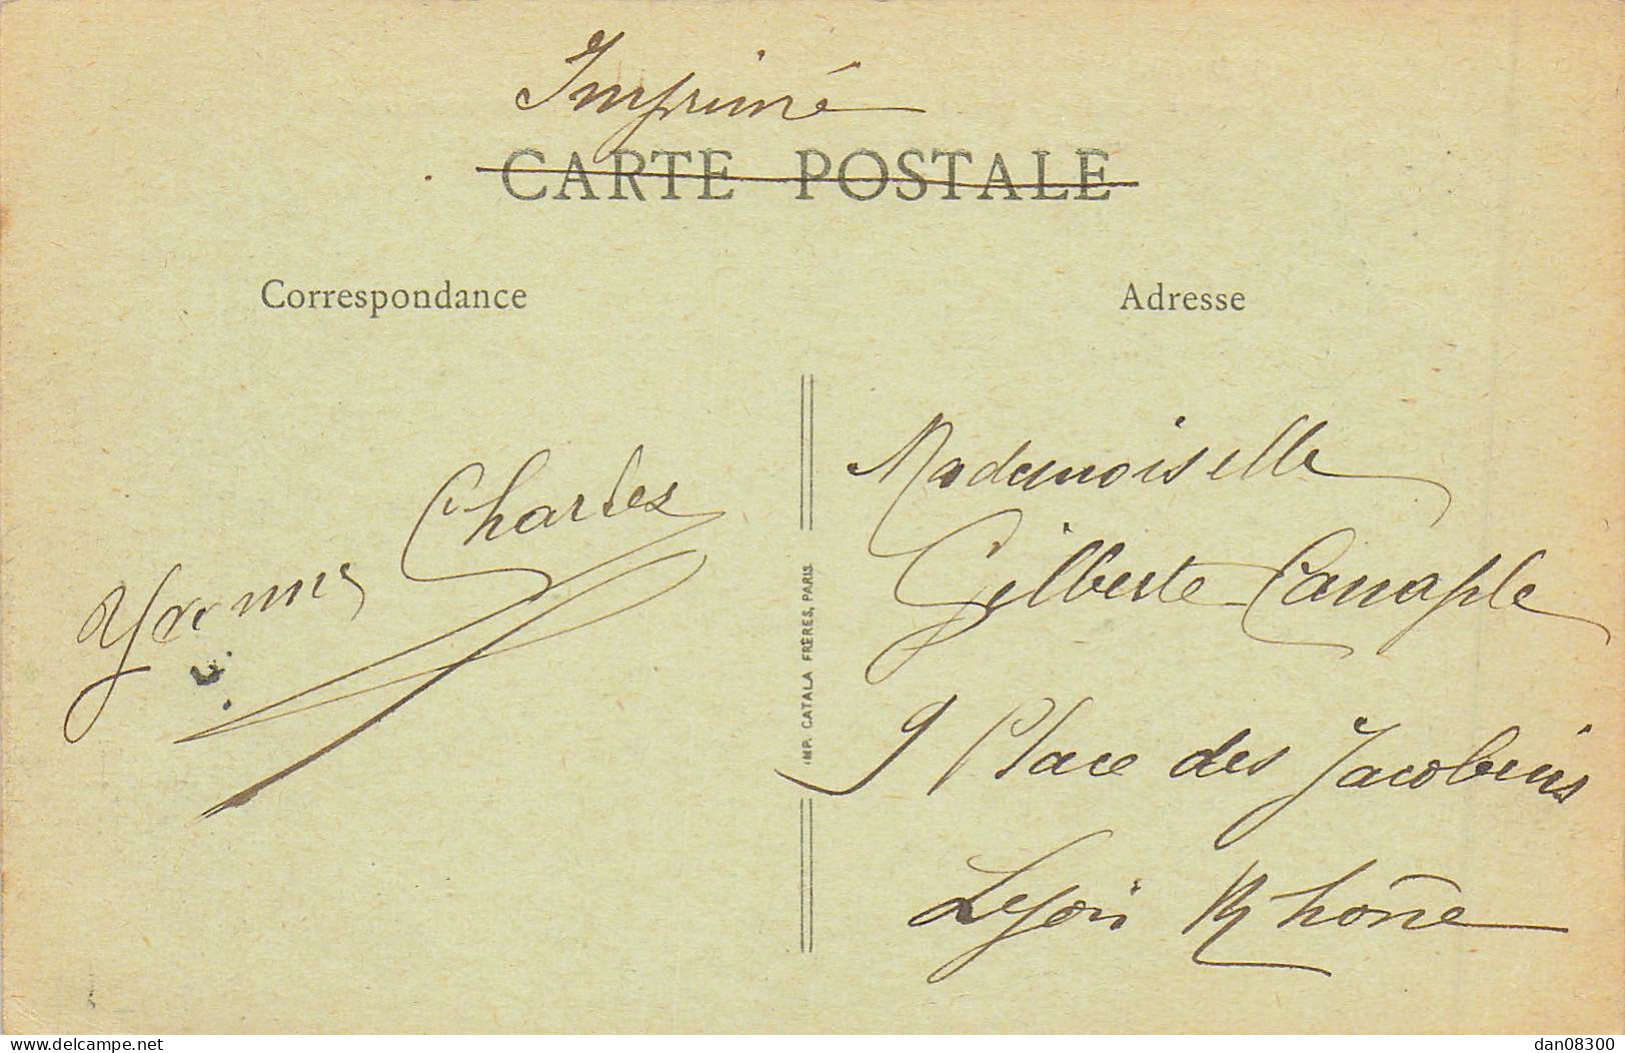 Imprimé
CARTE POSTALE
Correspondance
Adresse
Charles
IMP. CATALA FRÈRES, PARIS
Mademoiselle
Gilberte Canaple
9 Place des Jacobins
Lyon Rhône
www.delcampe.net
dan08300